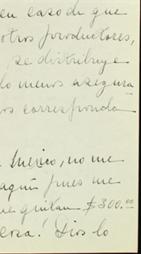 en caso de que
otros productores,
se distribuye
lo menos asegura
os corresponda
Mexico, no me
aqui pues me
ue quitan $300.00
cosa! Dios lo